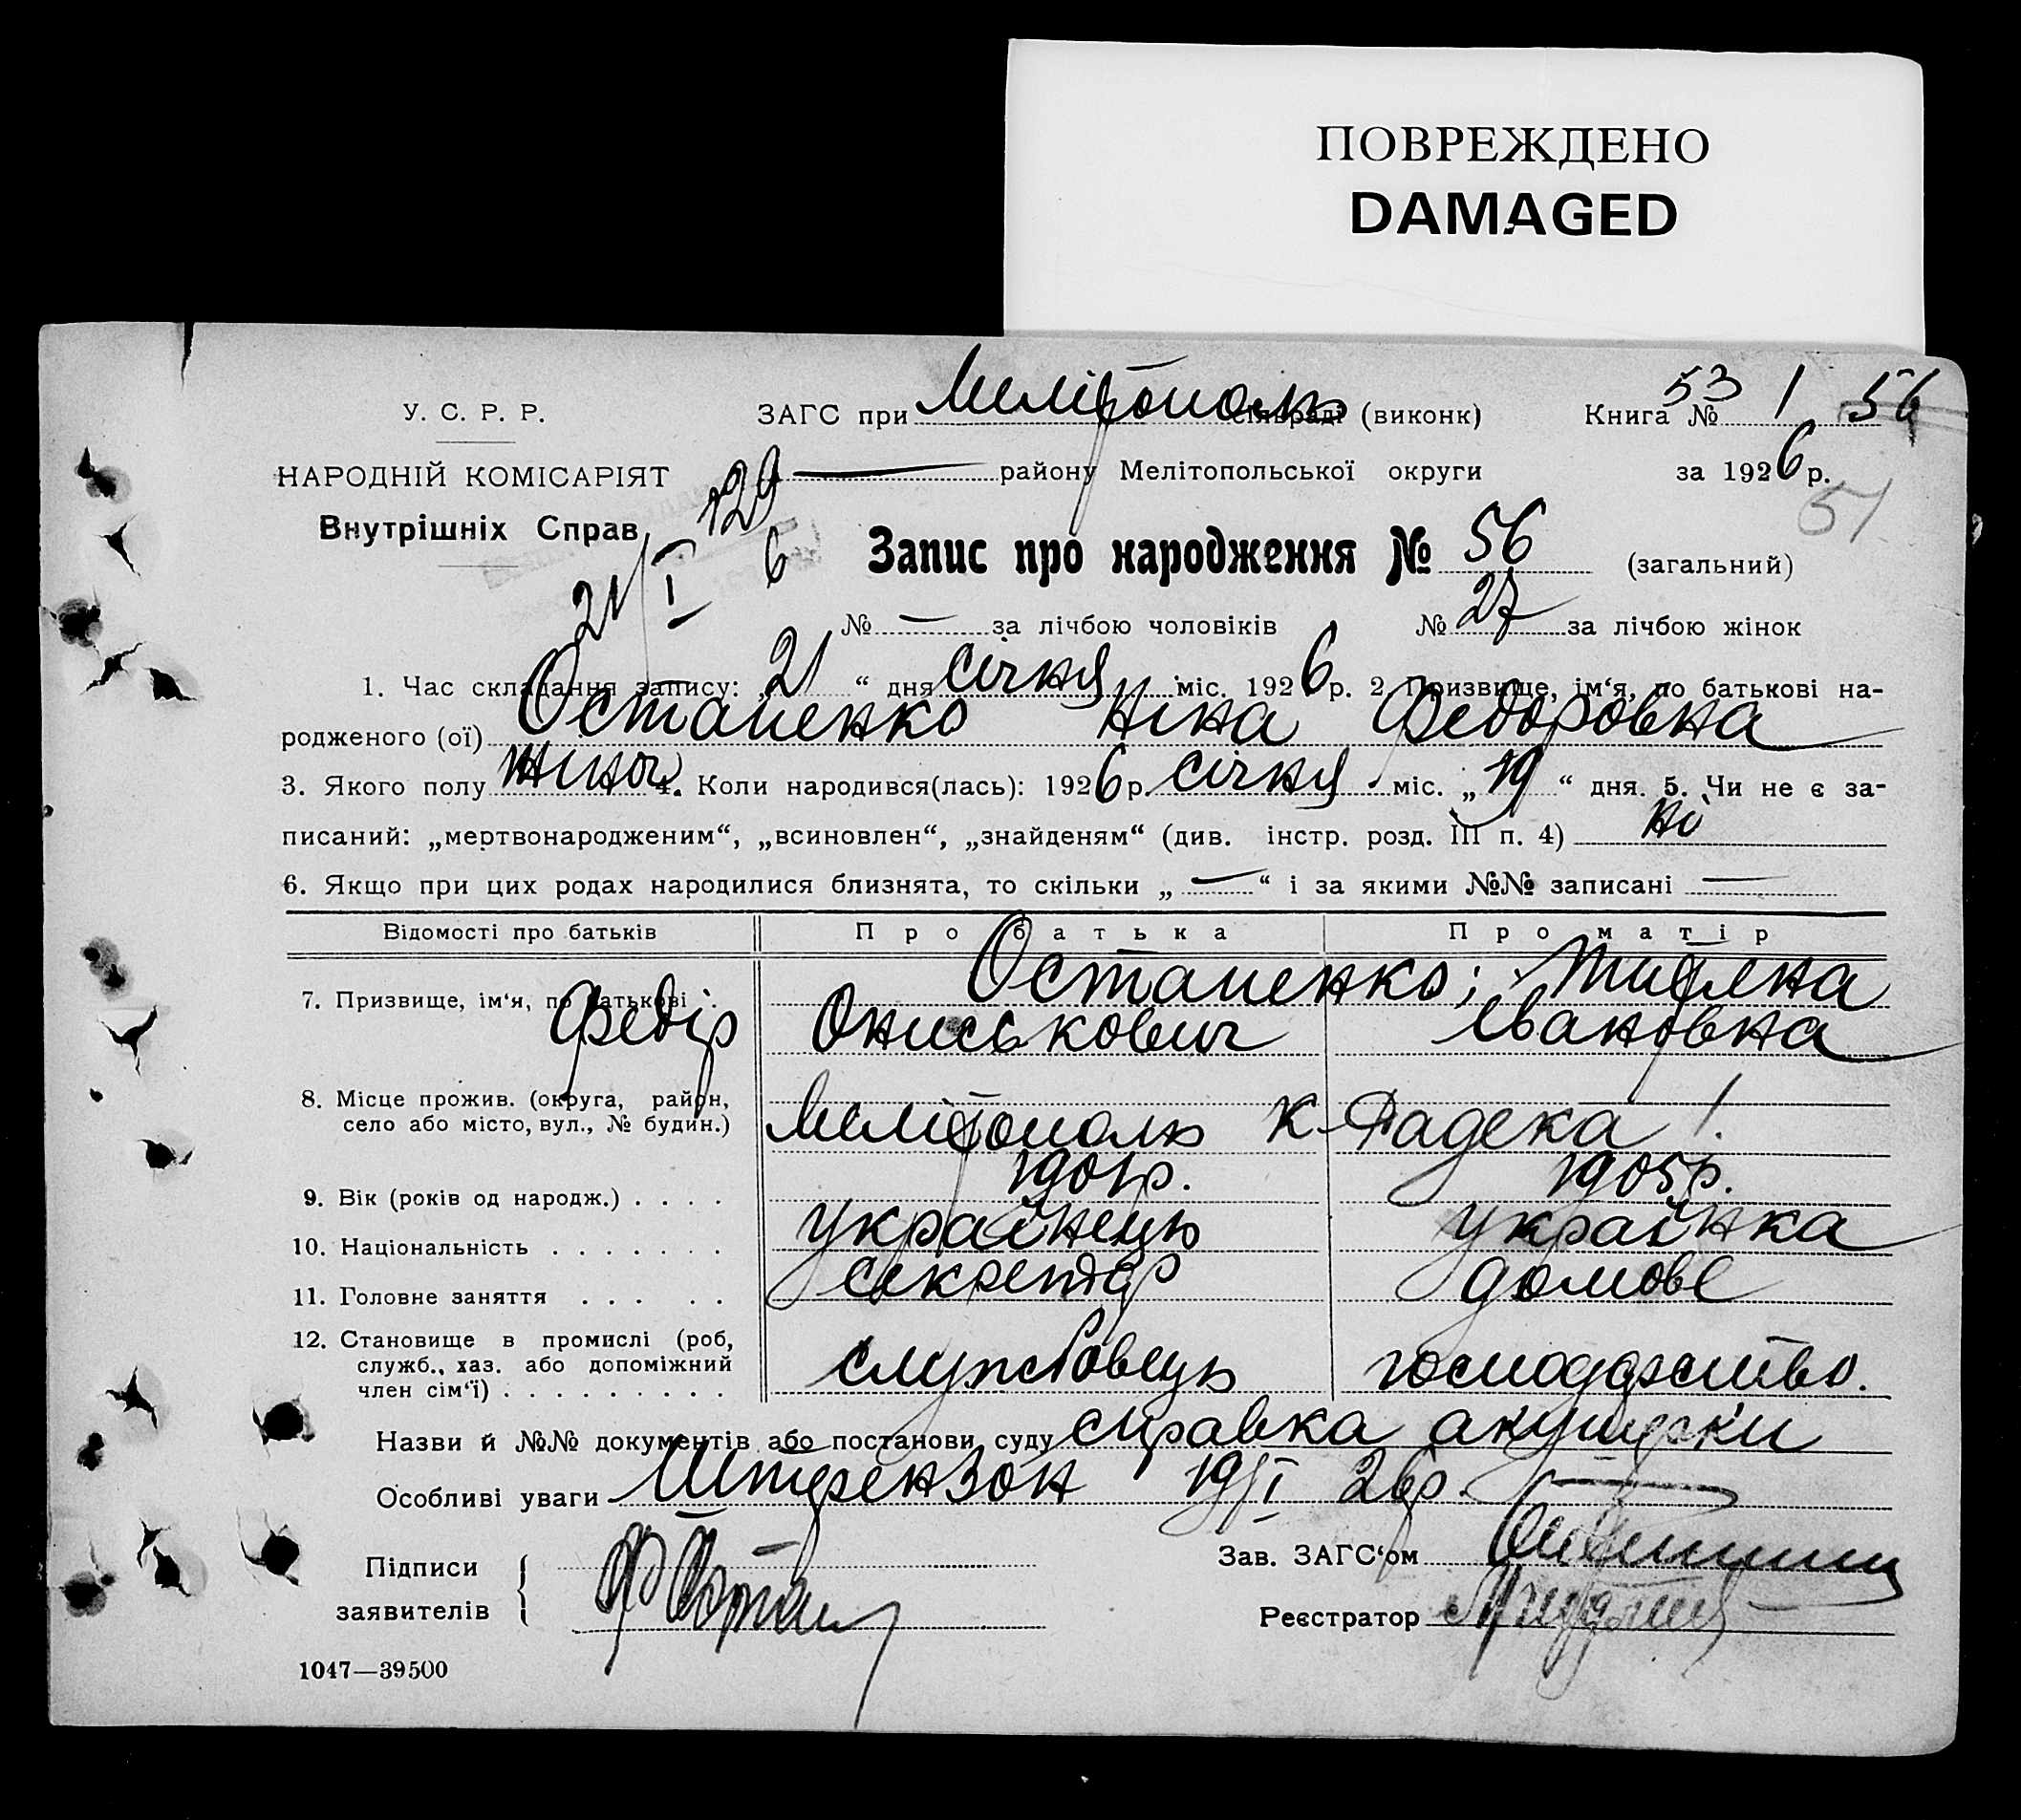 ПОВРЕЖДЕНО
DAMAGED
У. С. Р. Р.
ЗАГС при Мелітополь сільраді (виконк)
Книга № 53 1 56
НАРОДНІЙ КОМІСАРІЯТ
129 — району Мелітопольської округи
за 1926 р.
51
Внутрішніх Справ
21/I 6
Запис про народження № 56 (загальний)
№ — за лічбою чоловіків № 27 за лічбою жінок
1. Час складання запису: „21“ дня січня міс. 1926 р. 2 Призвище, ім‘я, по батькові на-
родженого (ої) Остапенко Ніна Федоровна
3. Якого полу жіноч. 4. Коли народився(лась): 1926 р. січня міс. „19“ дня. 5. Чи не є за-
писаний: „мертвонародженим“, „всиновлен“, „знайденям“ (див. інстр. розд. III п. 4) ні
6. Якщо при цих родах народилися близнята, то скільки „—“ і за якими №№ записані —
Відомості про батьків Про батька Про матір
7. Призвище, ім‘я, по батькові Остапенко;
Федір Ониськович Івановна
8. Місце прожив. (округа, район,
село або місто, вул., № будин.) Мелітополь К-Радека 1.
9. Вік (років од народж.) . . . . 1901р. 1905р.
10. Національність . . . . . . . українець українка
11. Головне заняття . . . . . секретар домове
12. Становище в промислі (роб,
служб., хаз. або допоміжний
член сім‘ї) . . . . . . . . . службовець господарство.
Назви й №№ документів або постанови суду справка акушерки
Особливі уваги Штерензон 19/I 26р.
Підписи
заявителів
Зав. ЗАГС‘ом
Реєстратор
1047—39500